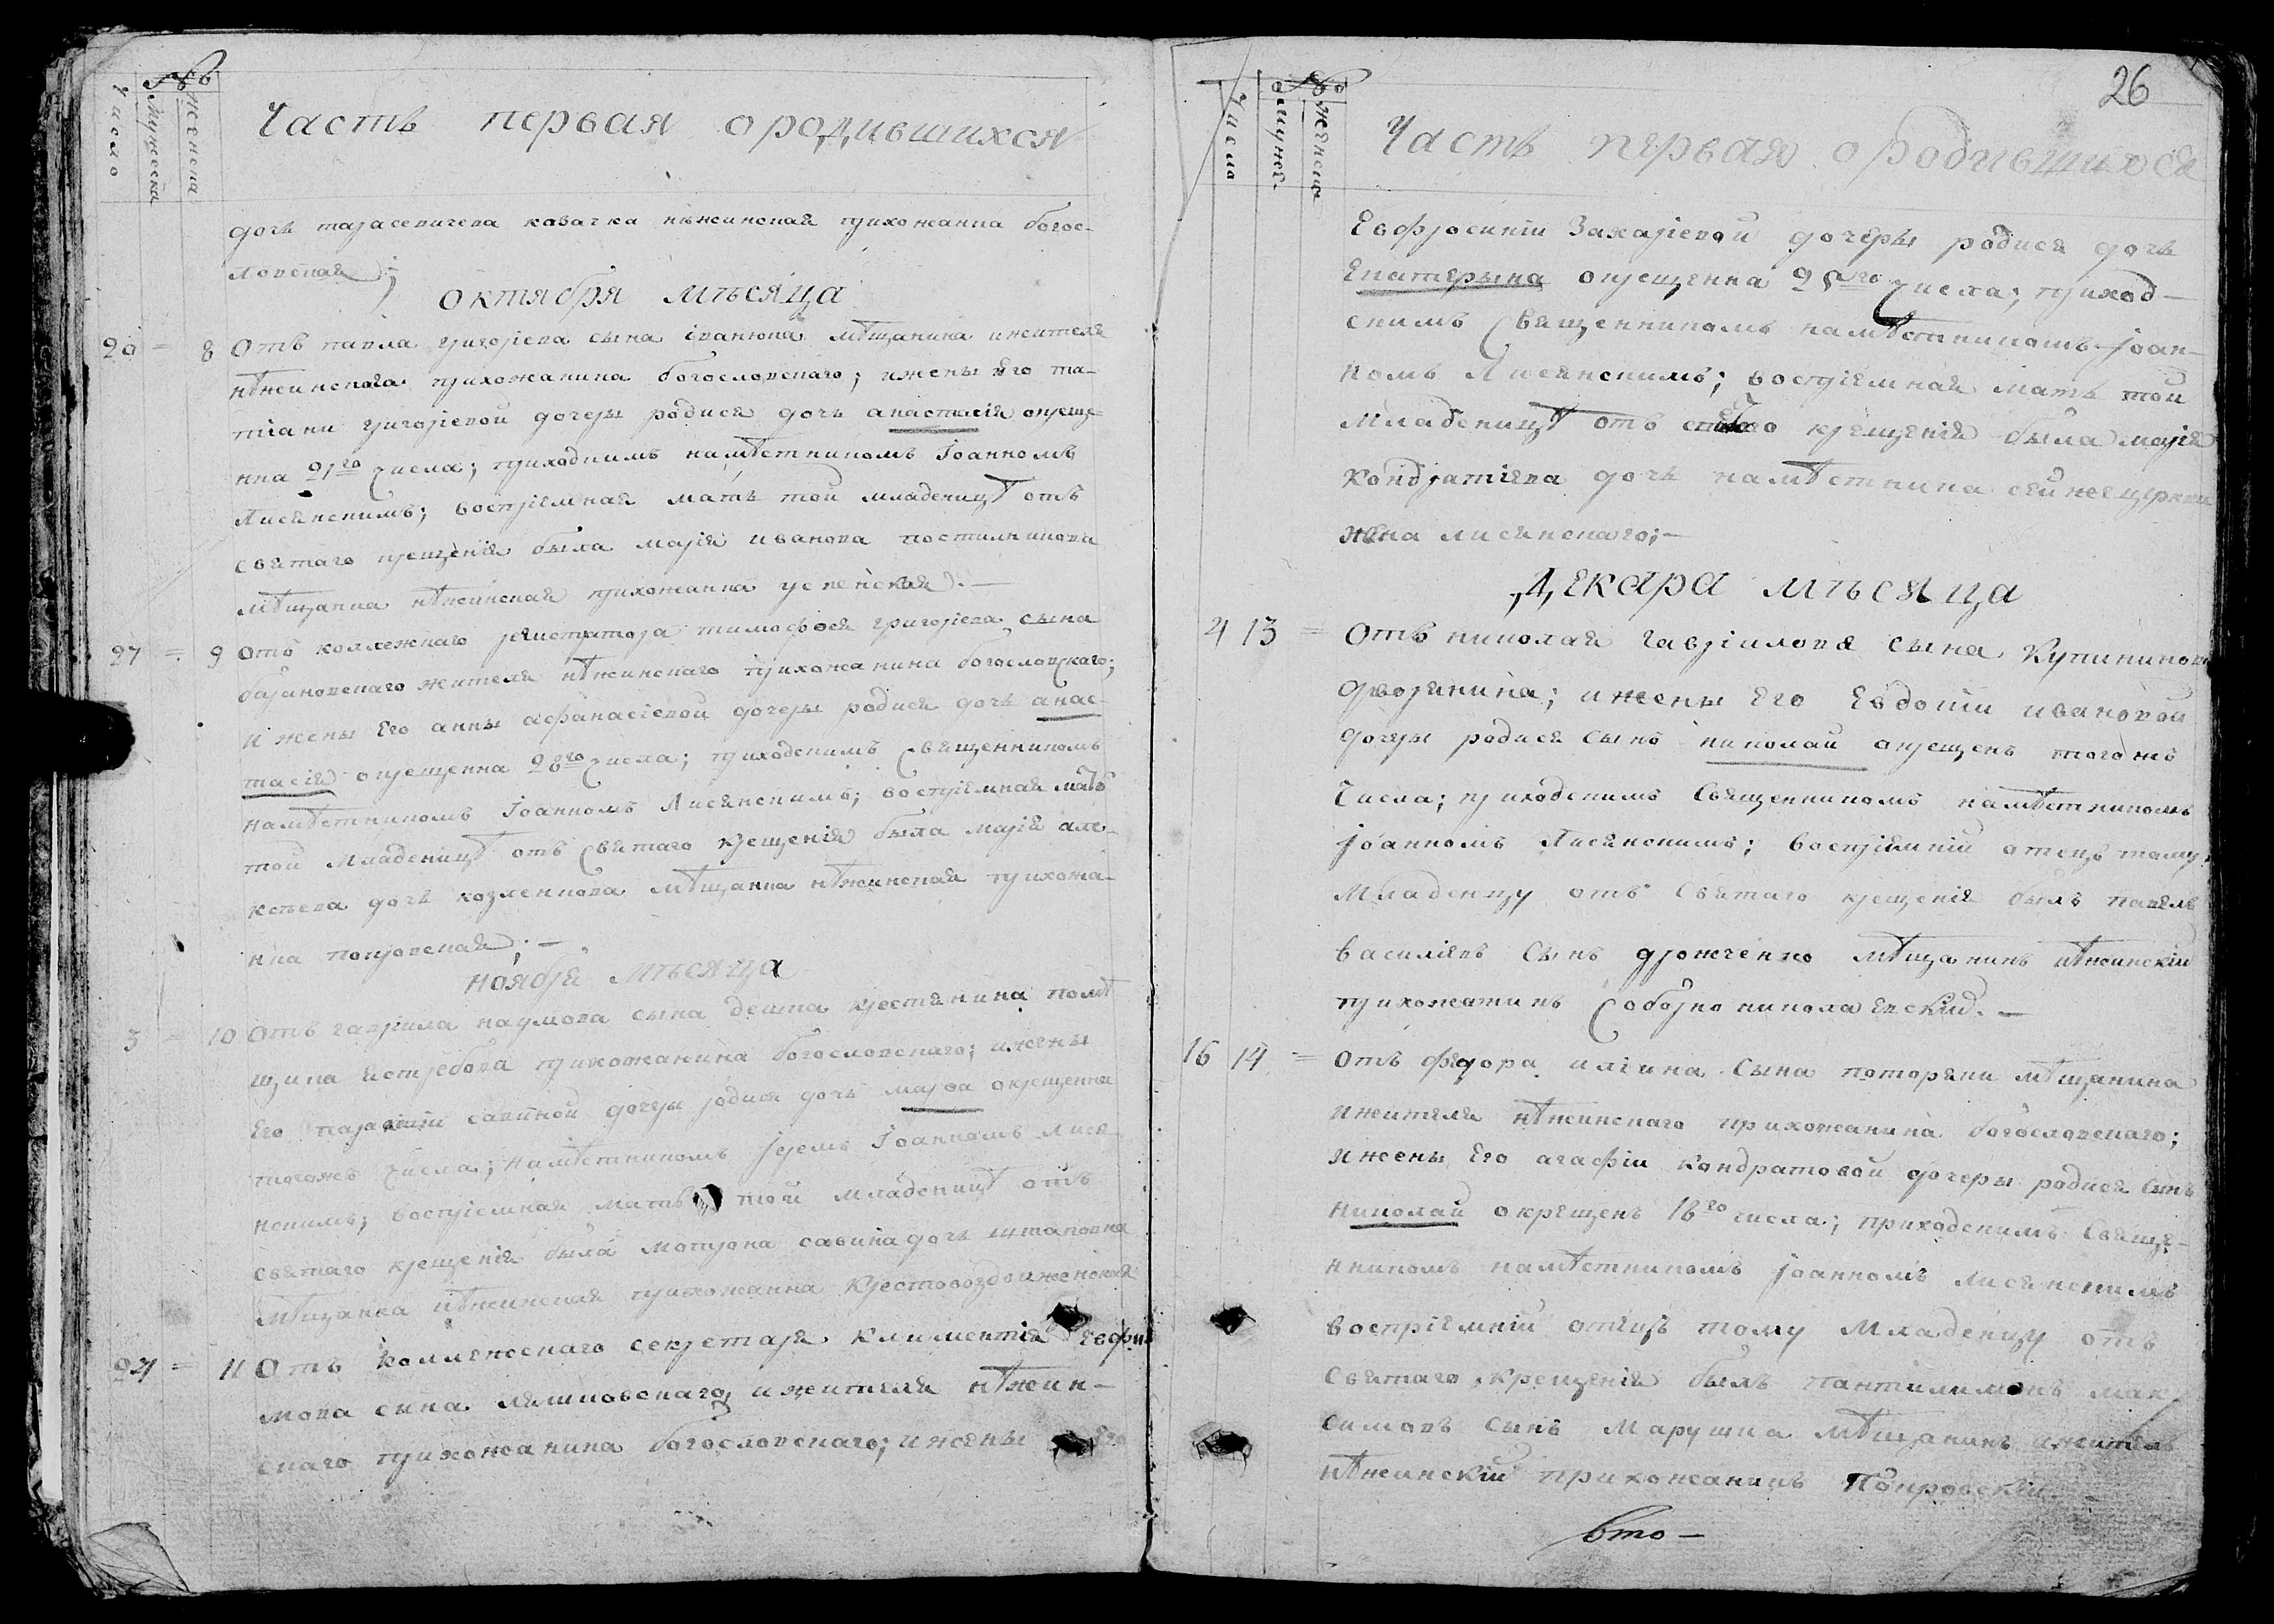 №
число
мужеска
женска
Часть первая ородившихся
дочь тарасевичева козачка нѣжинская прихожанка богос-
ловская;
октября мѣсяца
20 = 8 Отъ павла григорiева сына iванюка мѣщанина ижителя
нѣжинскога прихожанина богословскаго; ижены Его та-
тiани григорiевой дочеры родися дочь анастасiя окреще-
нна 21го числа; приходкимъ намѣстникомъ Iоанномъ
Лисянскимъ; воспрiемная мать той младеницѣ отъ
святаго крещенiя была марiя иванова постилникова
мѣщанка нѣжинская прихожанка успенская.—
27 = 9 Отъ коллежнаго регистратора тимофея григорiева сына
барановскаго жителя нѣжинскаго прихожанина богословскаго;
и жены Его анны афанасiевой дочеры родися дочь анас-
тасiя окрещенна 28го числа; приходскимъ священникомъ
намѣстникомъ Iоанномъ Лисянскимъ; воспрiемная мать
той младеницѣ отъ святаго крещенiя была марiя але-
ксѣева дочь козленкова мѣщанка нѣжинская прихожа-
нка покровская;—
ноября мѣсяца
3 = 10 Отъ гаврiила наумова сына крестянина помѣ
щика Ястребова прихожанина богословскаго; ижены
Его параскiи савиной дочеры родися дочь марѳа окрещенна
тогожъ числа; намѣстникомъ Iереемъ Iоанномъ Лися-
нскимъ; воспрiемная мать той младеницѣ отъ
святаго крещенiя была мотрона савина дочь
мѣщанка нѣжинская прихожанка Крестовоздвиженская
24 = 11 Отъ Коллежскаго секретаря Климентiя Евфи
мова сина ижителя нѣжин-
скаго прихожанина богословскаго; ижены Его
26
№
числа
мужес.
женска
Часть первая ородившихся
Евфросинiи Захарiевой дочеры родися дочь
Екатерына окрещенна числа; приход-
скимъ священникомъ намѣстникомъ Iоан-
номъ Лисянскимъ; воспрiемная мать той
младеницѣ отъ крещенiя была марiя
Кондратiева дочь намѣстника сейже церкви
жена лисянскаго;—
Декабра мѣсяца
4 13 = Отъ николая гаврiилова сына
дворянина; ижены Его Евдокiи ивановой
дочеры родися сынъ николай окрещенъ тогожъ
числа; приходскимъ священникомъ намѣстникомъ
Iоанномъ Лисянскимъ; воспрiемнiй отецъ тому
младенцу отъ святаго крещенiя былъ павелъ
василiевъ сынъ дрожченко мѣщанинъ нѣжинскiй
прихожанинъ соборно николаевскiй.—
16 14 = Отъ федора илiина сына мѣщанина
ижителя нѣжинскаго прихожанина богословскаго;
ижены Его агафiи кондратовой дочеры родися сынъ
николай окрещенъ 18го числа; приходскимъ свяще-
нникомъ намѣстникомъ Iоанномъ лисянскимъ
воспрiемнiй отецъ тому младеницу отъ
святаго крещенiя былъ пантилимонъ мак-
симовъ сынъ марушка мѣщанинъ ижитель
нѣжинскiй прихожанинъ Покровскiй
вто—